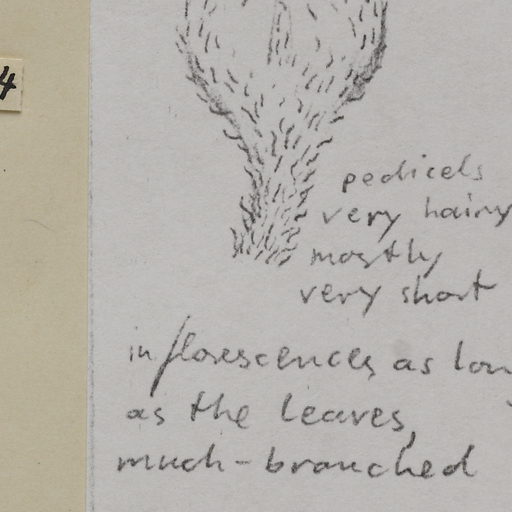 4
pedicels
very hairy
mostly
very short
inflorescences as lon
as the leaves,
much-branched